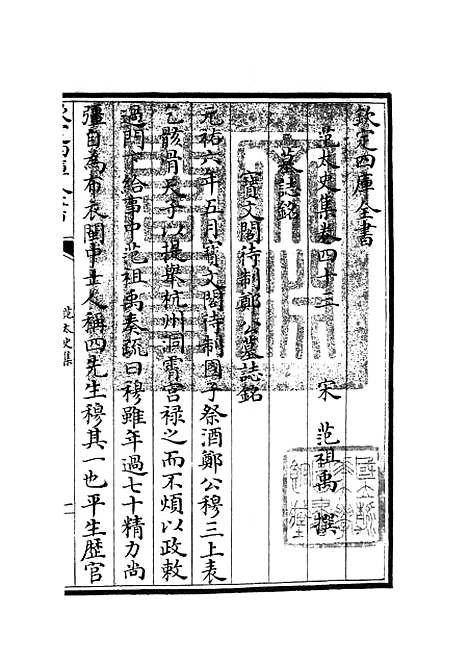 欽定四庫全書
范太史集卷四十三　宋　范祖禹　撰
墓誌銘
寳文閣待制鄭公墓誌銘
元祐六年五月寳文閣待制國子祭酒鄭公穆三上表
乞骸骨天子以提舉杭州洞霄宮禄之而不煩以政敕
過門下給事中范祖禹奏疏曰穆雖年過七十精力尚
彊自為布衣閩中士人稱四先生穆其一也平生歴官
欽定四庫全書
范太史集
一